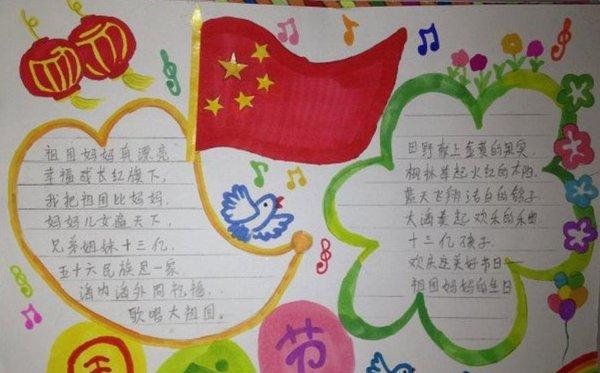 祖国妈妈真漂亮
幸福成长红旗下,
我把祖国比妈妈.
妈妈儿女遍天下,
兄弟姐妹十三亿.
五十六民族是一家
海内海外同祝福.
歌唱大祖国。
田野献上金黄的果实.
枫林举起火红的太阳.
蓝天飞翔洁白的鸽子
大海奏起欢乐的乐曲.
十三亿孩子
欢庆这美好节日——
祖国妈妈的生日
节